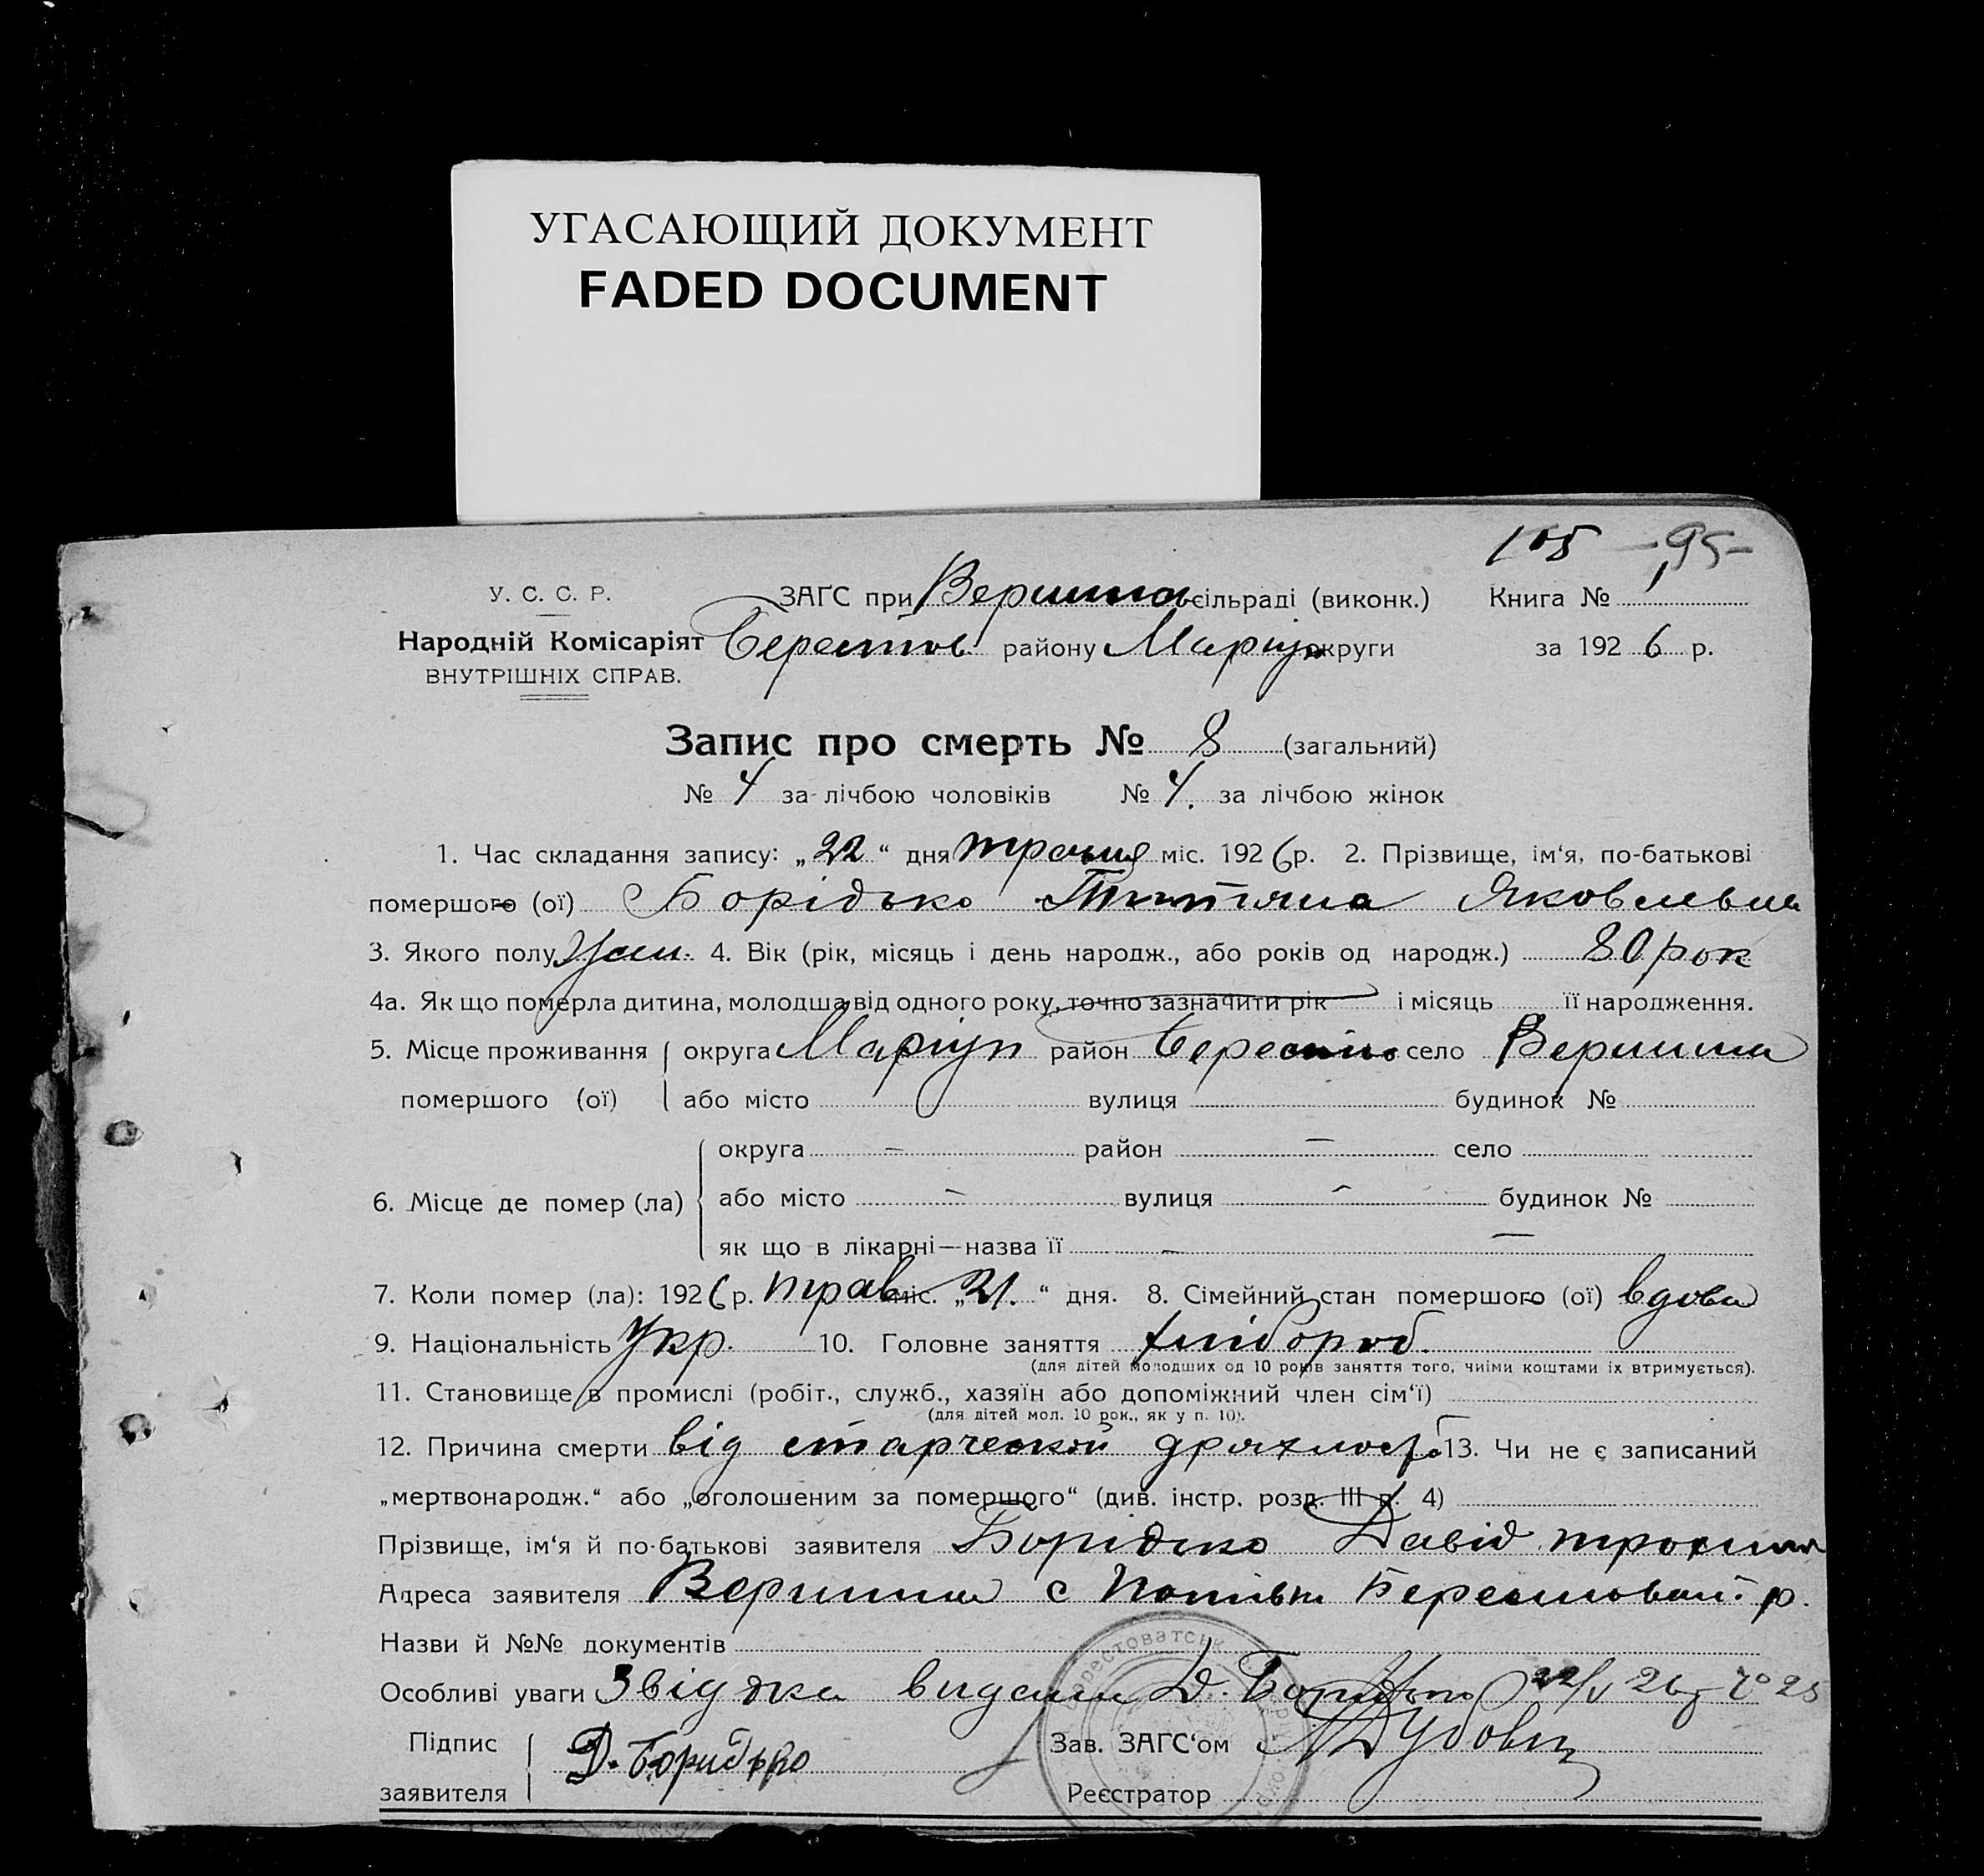 УГАСАЮЩИЙ ДОКУМЕНТ
FADED DOCUMENT
105 -95-
У. С. С. Р. ЗАГС при Вершина сільраді (виконк.) Книга № 1
Народній Комісаріят Берестов району Маріуп округи за 1926 р.
ВНУТРІШНІХ СПРАВ.
Запис про смерть № 8 (загальний)
№ 4 за лічбою чоловіків № 4. за лічбою жінок
1. Час складання запису: „22“ дня травня міс. 1926 р. 2. Прізвище, ім‘я, по-батькові
помершого (ої) Борідько Татіяна Яковлевна
3. Якого полу жен. 4. Вік (рік, місяць і день народж., або років од народж.) 80 рок
4а. Як що померла дитина, молодша від одного року, точно зазначити рік і місяць її народження.
5. Місце проживання округа Маріуп район Берестів село Вершина
помершого (ої) або місто вулиця будинок №
округа – район – село
6. Місце де помер (ла) або місто – вулиця – будинок №
як що в лікарні—назва її – –
7. Коли помер (ла): 1926 р. трав міс. „21.“ дня. 8. Сімейний стан помершого (ої) вдова
9. Національність Укр. 10. Головне заняття хлібороб.
(для дітей молодших од 10 років заняття того, чиїми коштами їх втримується).
11. Становище в промислі (робіт., служб., хазяїн або допоміжний член сім‘ї)
(для дітей мол. 10 рок., як у п. 10).
12. Причина смерти від старческой дряхлості 13. Чи не є записаний
„мертвонародж.“ або „оголошеним за помершого“ (див. інстр. розд. III п. 4)
Прізвище, ім‘я й по-батькові заявителя Борідько Давід трохим
Адреса заявителя Вершина с Берестоват. р.
Назви й №№ документів
Особливі уваги Звідка видана Д. Борідько 22/V 26 25
Підпис Зав. ЗАГС‘ом
Д. Боридько
заявителя Реєстратор